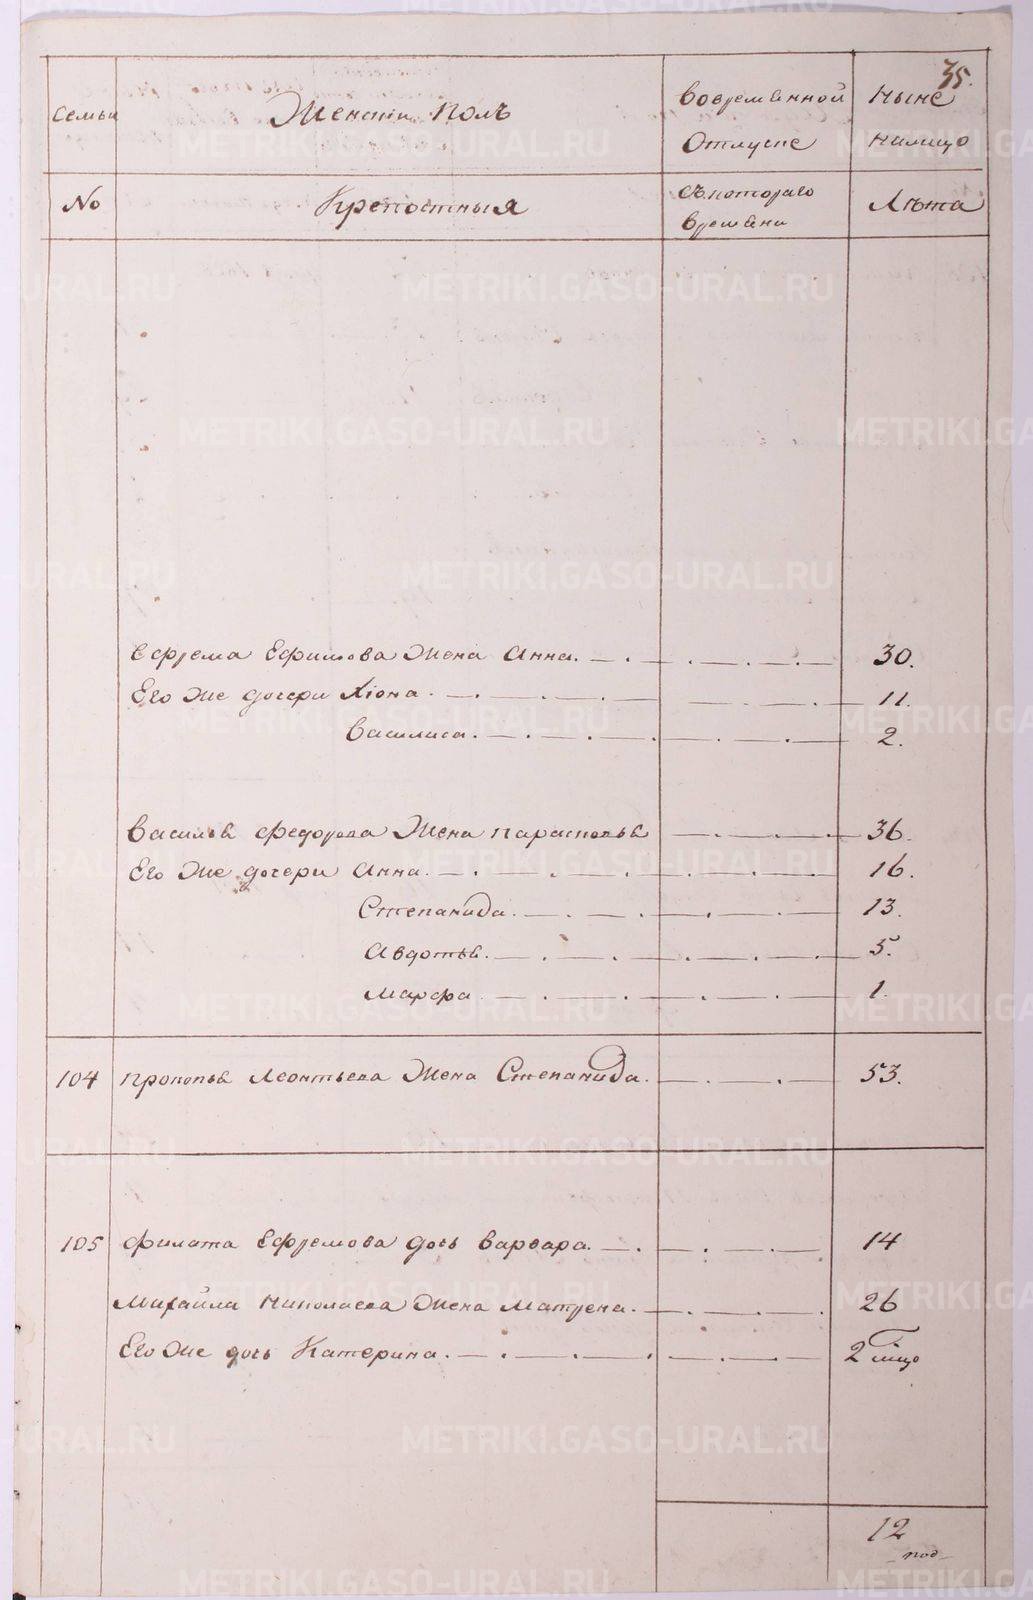 35.
Семьи Женски Полъ Вовременной Отлучке Ныне налицо
No Крепостныя Съкотораго времяни Лѣта
Ефрема Ефимова Жена Анна. 30.
Его Же дочери Хiона. 11.
Василиса. 2.
Василья Федорова Жена парасковья 36.
Его Же дочери Анна. 16.
Степанида. 13.
Авдотья. 5.
Марфа 1.
104 прокопья Леонтьева Жена Степанида. 53.
105 филата Ефремова дочь варвара. 14
Михайла Николаева Жена Матрена. 26
Его Же дочь Катерина. 2
12
METRIKI.GASO-URAL.RU